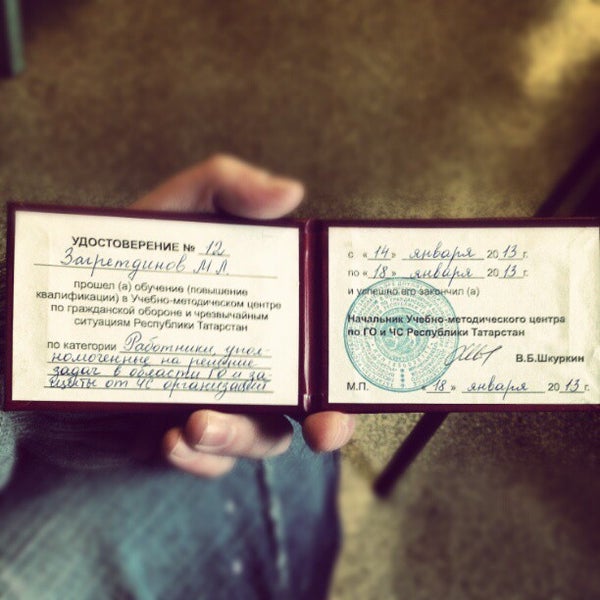 УДОСТОВЕРЕНИЕ № 12
Загретдинов М.Л.
прошел (а) обучение (повышение
квалификации) в Учебно-методическом центре
по гражданской обороне и чрезвычайным
ситуациям Республики Татарстан
по категории Работники, упол-
номоченные на решение
задач в области ГО и за-
щиты от ЧС организаций
с «14» января 2013 г.
по «18» января 2013 г.
и успешно его закончил (а)
Начальник Учебно-методического центра
по ГО и ЧС Республики Татарстан
В.Б.Шкуркин
М.П. «18» января 2013 г.